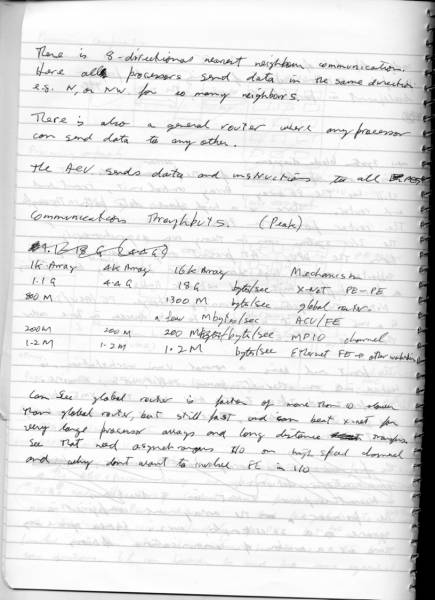 There is 8-directional nearest neighbour communication.
Here all processors send data in the same direction
e.g. N, or NW for so many neighbors.
There is also a general router where any processor
can send data to any other.
The ACU sends data and instructions to all PEs
Communications Throughputs. (Peak)
1K Array 4K Array 16K Array Mechanism
1.1 G 4.4 G 18 G bytes/sec X-Net PE-PE
800 M 1300 M bytes/sec global router
a few Mbytes/sec ACU/FE
200M 200 M 200 M bytes/sec MPIO channel
1.2 M 1.2 M 1.2 M bytes/sec Ethernet FE → other
Can see global router is factor of more than 10 slower
than global router, but still fast and can beat x-net for
very large processor arrays and long distance
See that need asynchronous I/O on high speed channel
and why don't want to involve FE in I/O